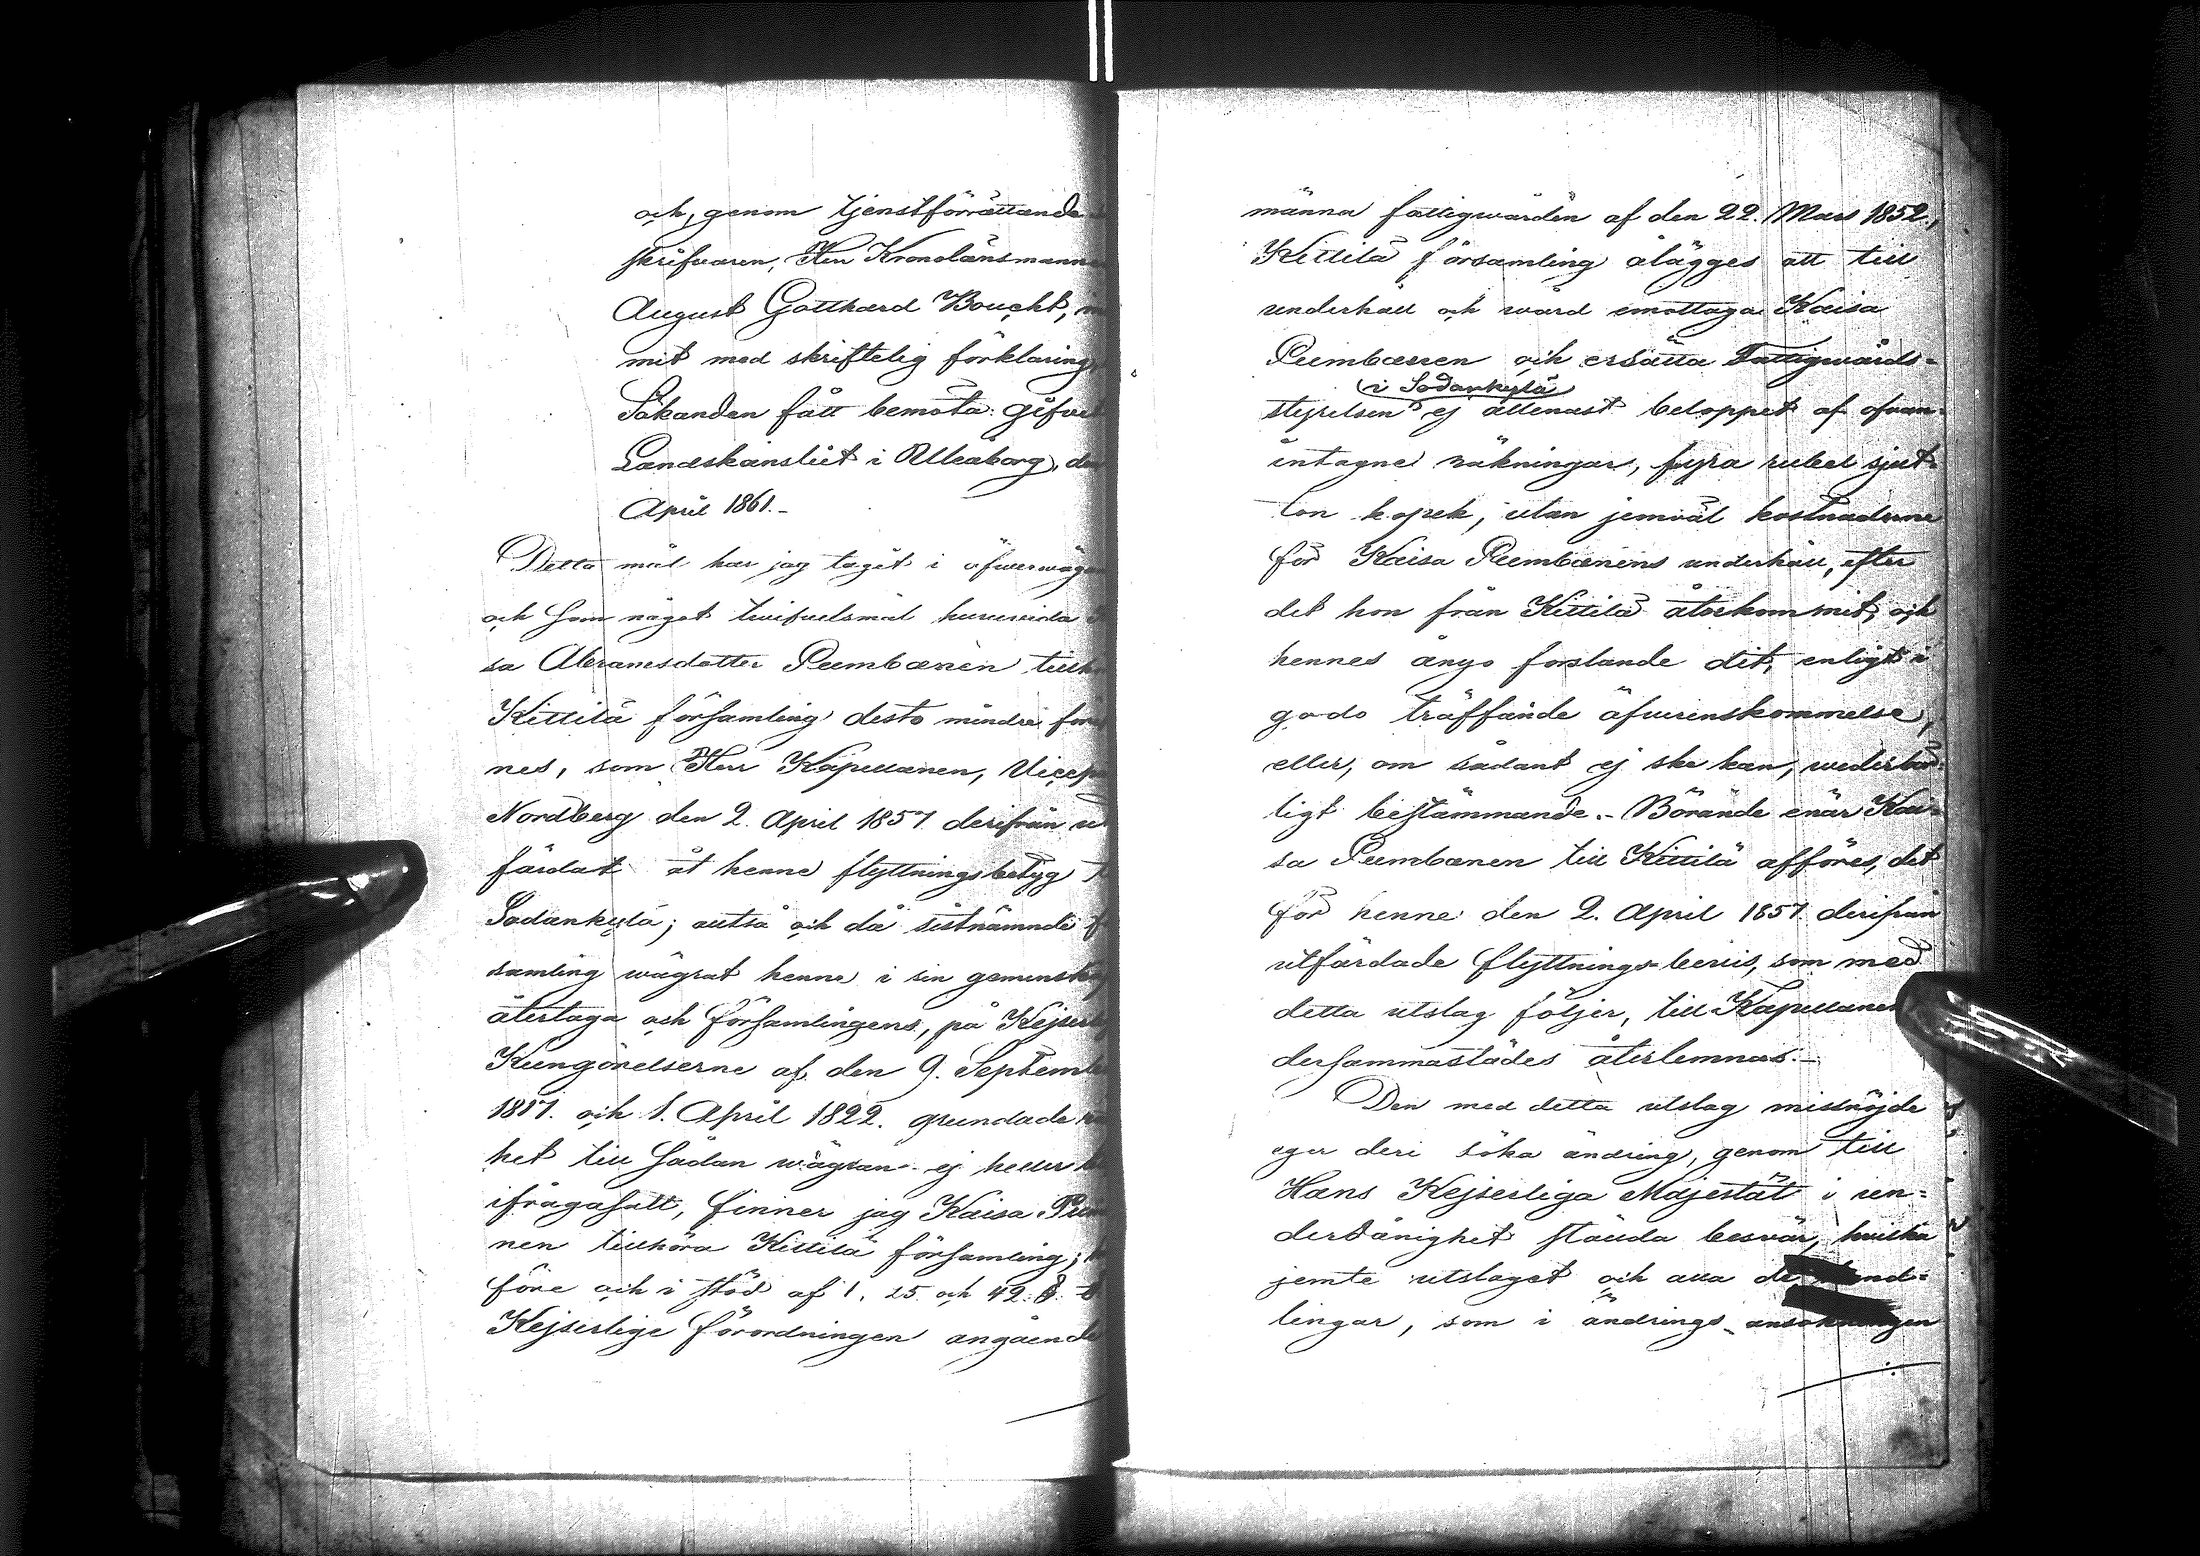 och, genom tjenstförrättande
skrifvaren, Herr Kronolänsmann
August Gotthard Boucht, in
mit med skriftelig förklaring
Sökanden fått bemöta: gifvet
Landskansliet i Uleåborg, den
April 1861.-
Detta mål har jag tagit i öfverväga
och som något tvifvelsmål huruvida
sa Abramsdotter Pumbanen tillh
Kittilä församling desto mindre för
nes, som Herr Kapellanen, Vicep
Nordberg den 2. April 1857 derifrån ut
färdat åt henne flyttningsbetyg
Sodankylä; alltså och då sistnämnde f
samling vägrat henne i sin gemensk
återtaga och församlingens, på Kejserl
Kungörelserne af den 9. Septemb
1817. och 1. April 1822. grundade
het till sådan vägran ej heller
ifrågasatt, finner jag Kaisa Pum
nen tillhöra Kittilä församling;
före och i stöd af 1, 25 och 42. §.
Kejserlige förordningen angående
männa fattigvården af den 22. Mars 1852,
Kittilä församling ålägges att till
underhåll och vård emottaga Kaisa
Pumbanen och ersätta Fattigvårds-
(i Sodankylä)
styrelsen ej allenast beloppet af ofvan-
intagne räkningar, fyra rubel sjut-
ton kopek, utan jemväl kostnaderne
för Kaisa Pumbanens underhåll, efter
det hon från Kittilä återkommit, och
hennes ånyo forslande dit, enligt i
godo träffande öfverenskommelse,
eller, om sådant ej ske kan, vederbör-
ligt bestämmande.- Börande enär Kai-
sa Pumbanen till Kittilä afföres, det
för henne den 2. April 1857 derifrån
utfärdade flyttnings-bevis, som med
detta utslag följer, till Kapellanen
dersammastädes återlemnas.-
Den med detta utslag missnöjde
eger deri söka ändring, genom till
Hans Kejserliga Majestät i un-
derdånighet stälda besvär, hvilka
jemte utslaget och alla de hand-
lingar, som i ändrings-ansökningen